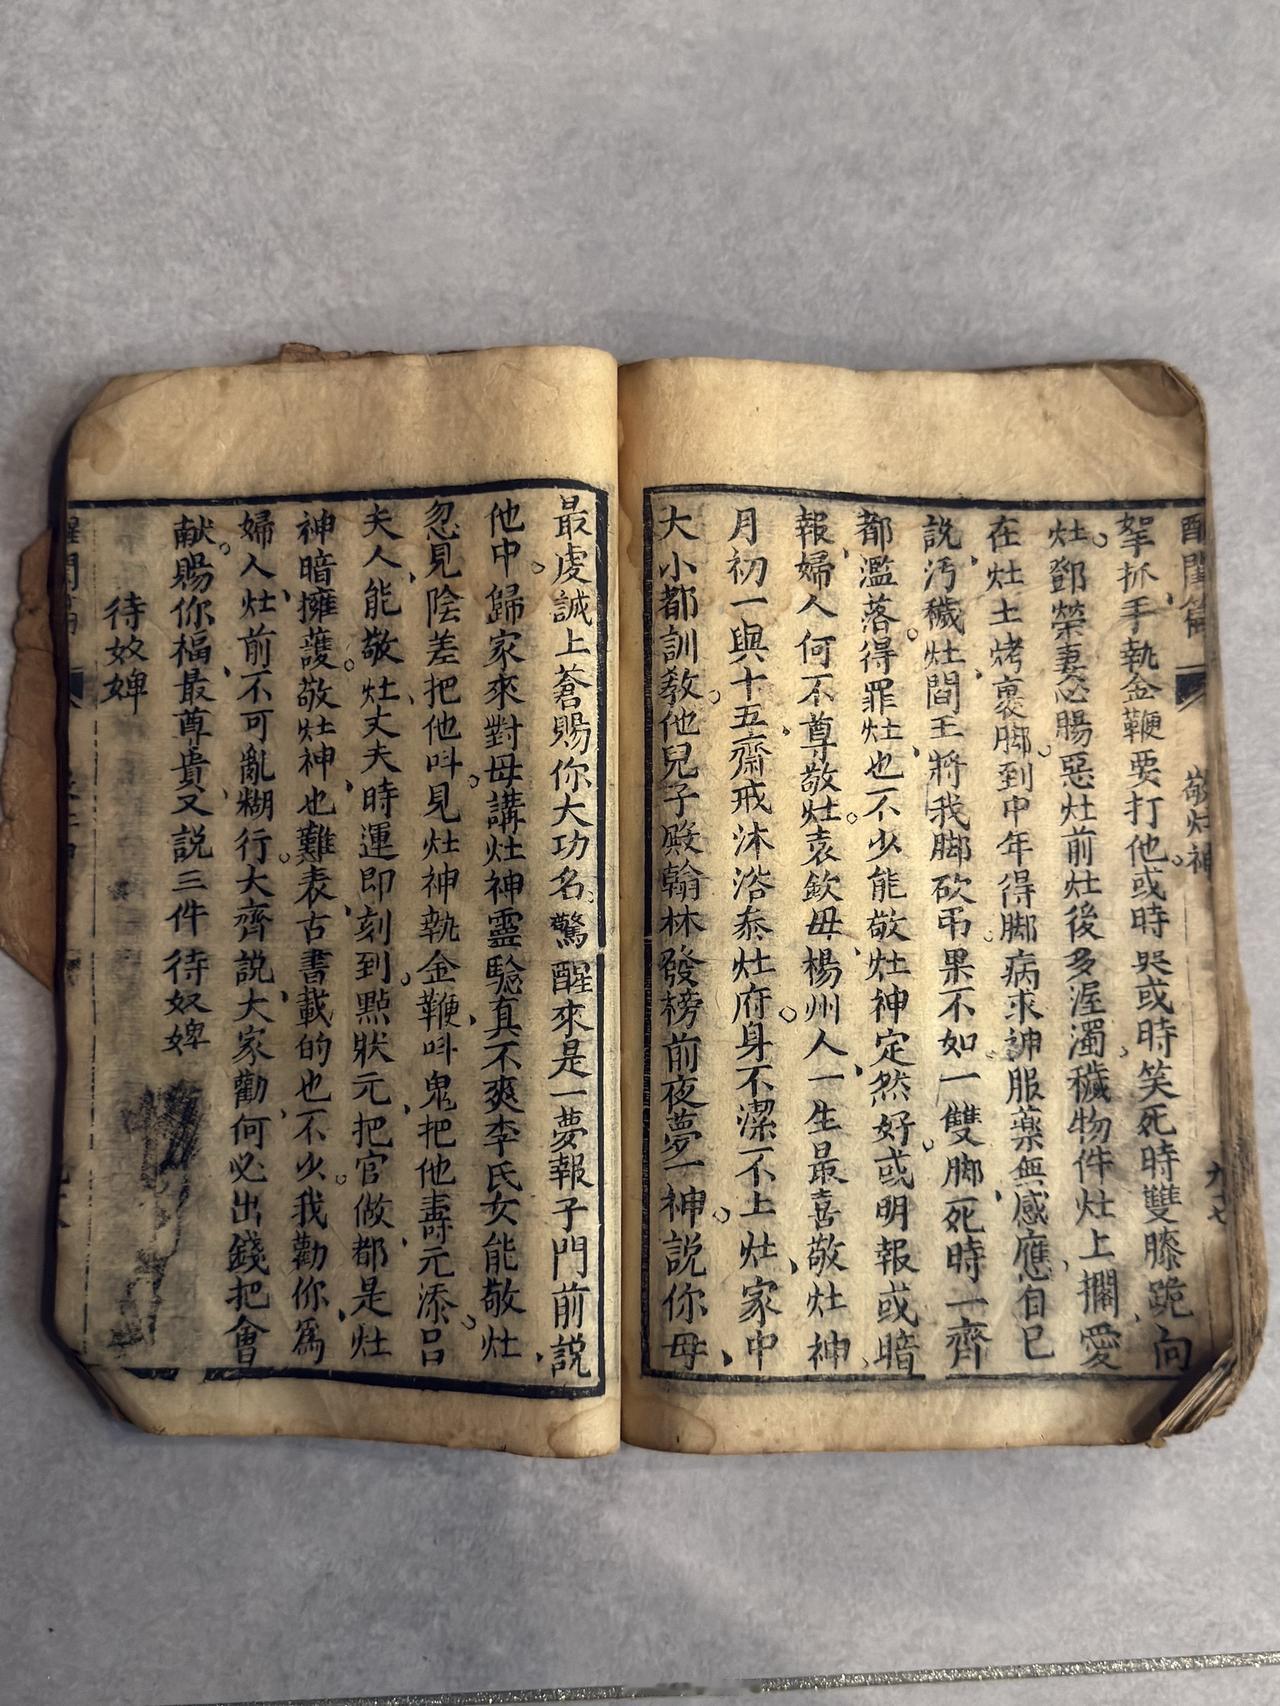 醒閨篇 敬灶神
拏抓手執金鞭要打他。或時哭或時笑死時雙膝跪向
灶。鄧榮妻惡腸惡灶前灶後多渥濁穢物件灶上擱愛
在灶土烤裹脚。到中年得脚病求神服藥無感應自巳
説汚穢灶閻王將我脚砍弔。果不如一雙脚死時一齊
都濫落。得罪灶也不少能敬灶神定然好。或明報或暗
報婦人何不尊敬灶。袁欽毋楊州人一生最喜敬灶神
月初一與十五齋戒沐浴叅灶府。身不潔不上灶家中
大小都訓教。他兒子殿翰林發榜前夜夢一神。説你母
最虔誠上蒼賜你大功名。驚醒來是一夢報子門前説
他中。歸家來對母講灶神靈騐真不爽李氏女能敬灶
忽見陰差把他呌。見灶神執金鞭呌鬼把他壽元添。呂
夫人能敬灶丈夫時運即刻到。點狀元把官做都是灶
神暗擁護。敬灶神也難表古書載的也不少。我勸你為
婦人灶前不可亂糊行。大齊説大家勸何必出錢把會
献。賜你福最尊貴又説三件待奴婢
待奴婢